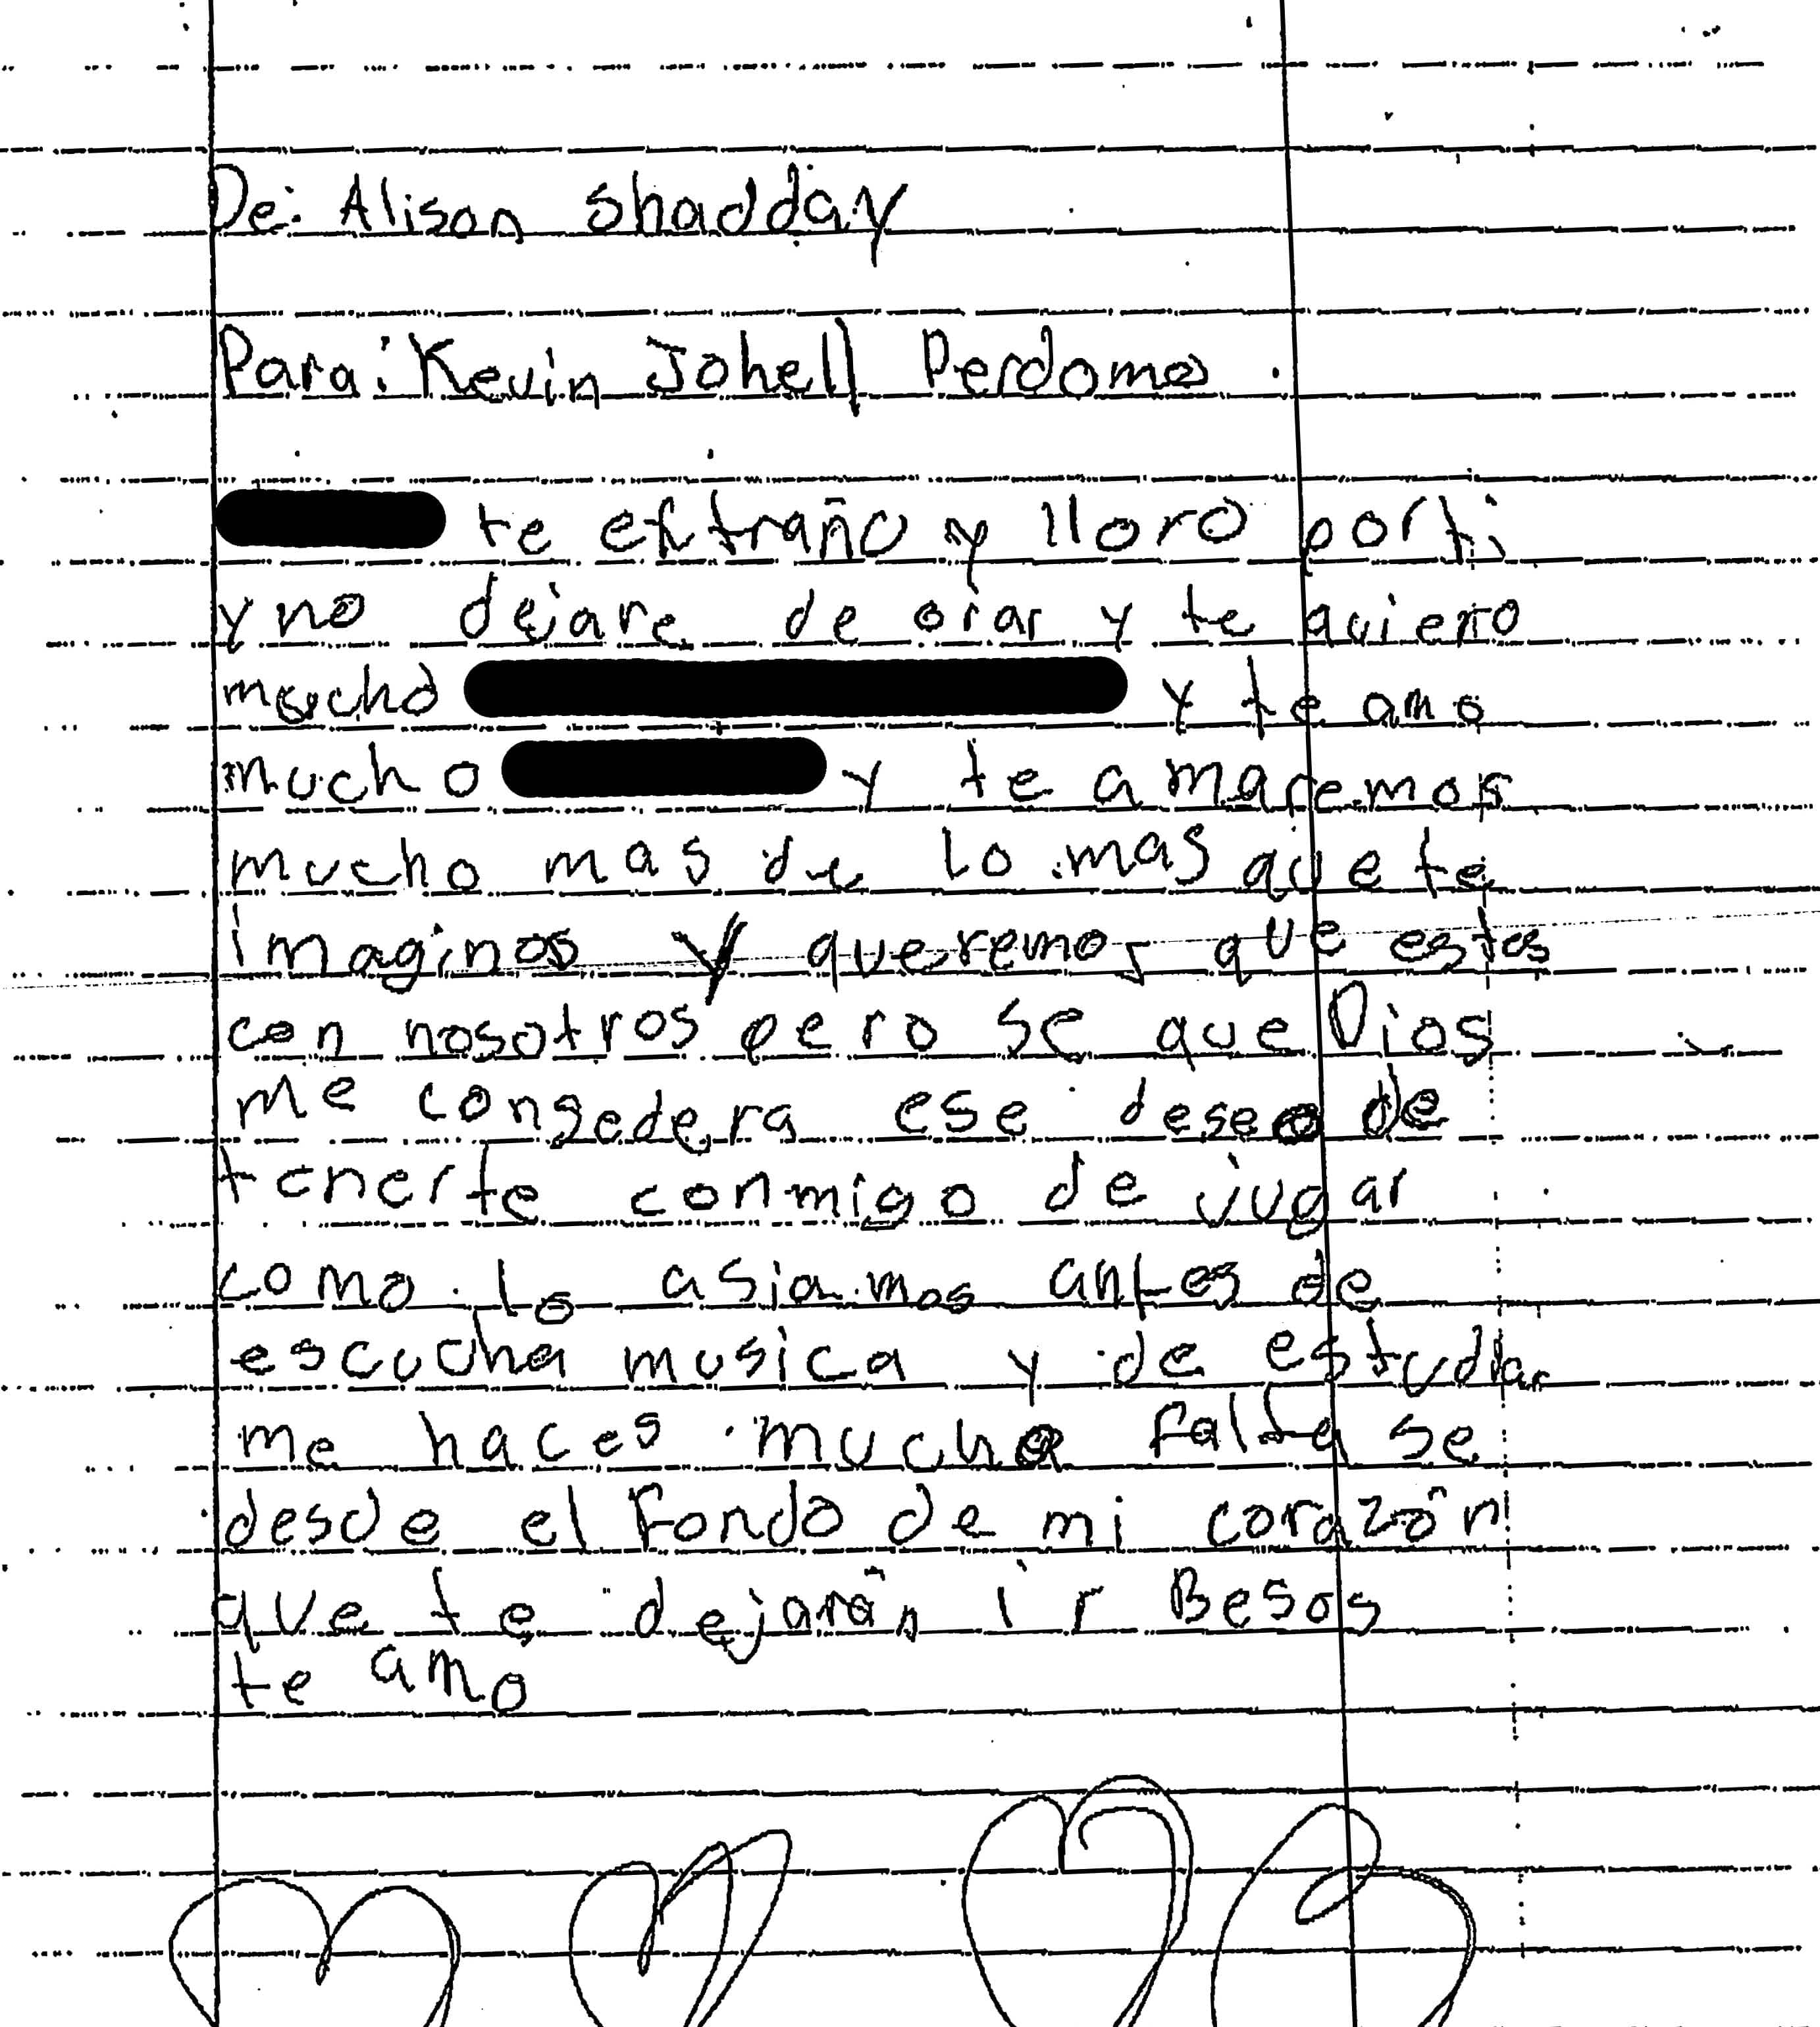 De: Alison Shadday
Para: Kevin Johell Perdomo
te extraño y lloro por ti
y no dejare de orar y te quiero
mucho y te amo
mucho y te amaremos
mucho mas de lo mas que te
imaginos y queremos que estes
con nosotros pero se que Dios
me consedera ese deseo de
tenerte conmigo de jugar
como lo asiamos antes de
escucha musica y de estudiar
me haces mucha falta se
desde el fondo de mi corazón
que te dejarán ir Besos
te amo